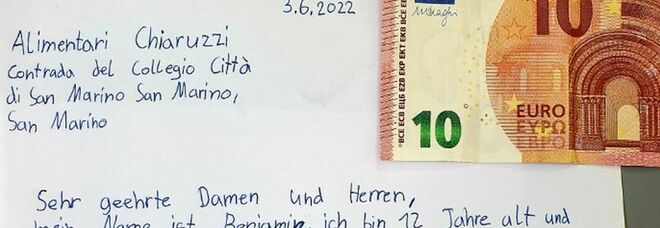 3.6.2022
Alimentari Chiaruzzi
Contrada del Collegio Città
di San Marino San Marino,
San Marino
10
10
EURO
ΕΥΡΩ
ЕВРО
Sehr geehrte Damen und Herren,
mein Name ist Benjamin, ich bin 12 Jahre alt und